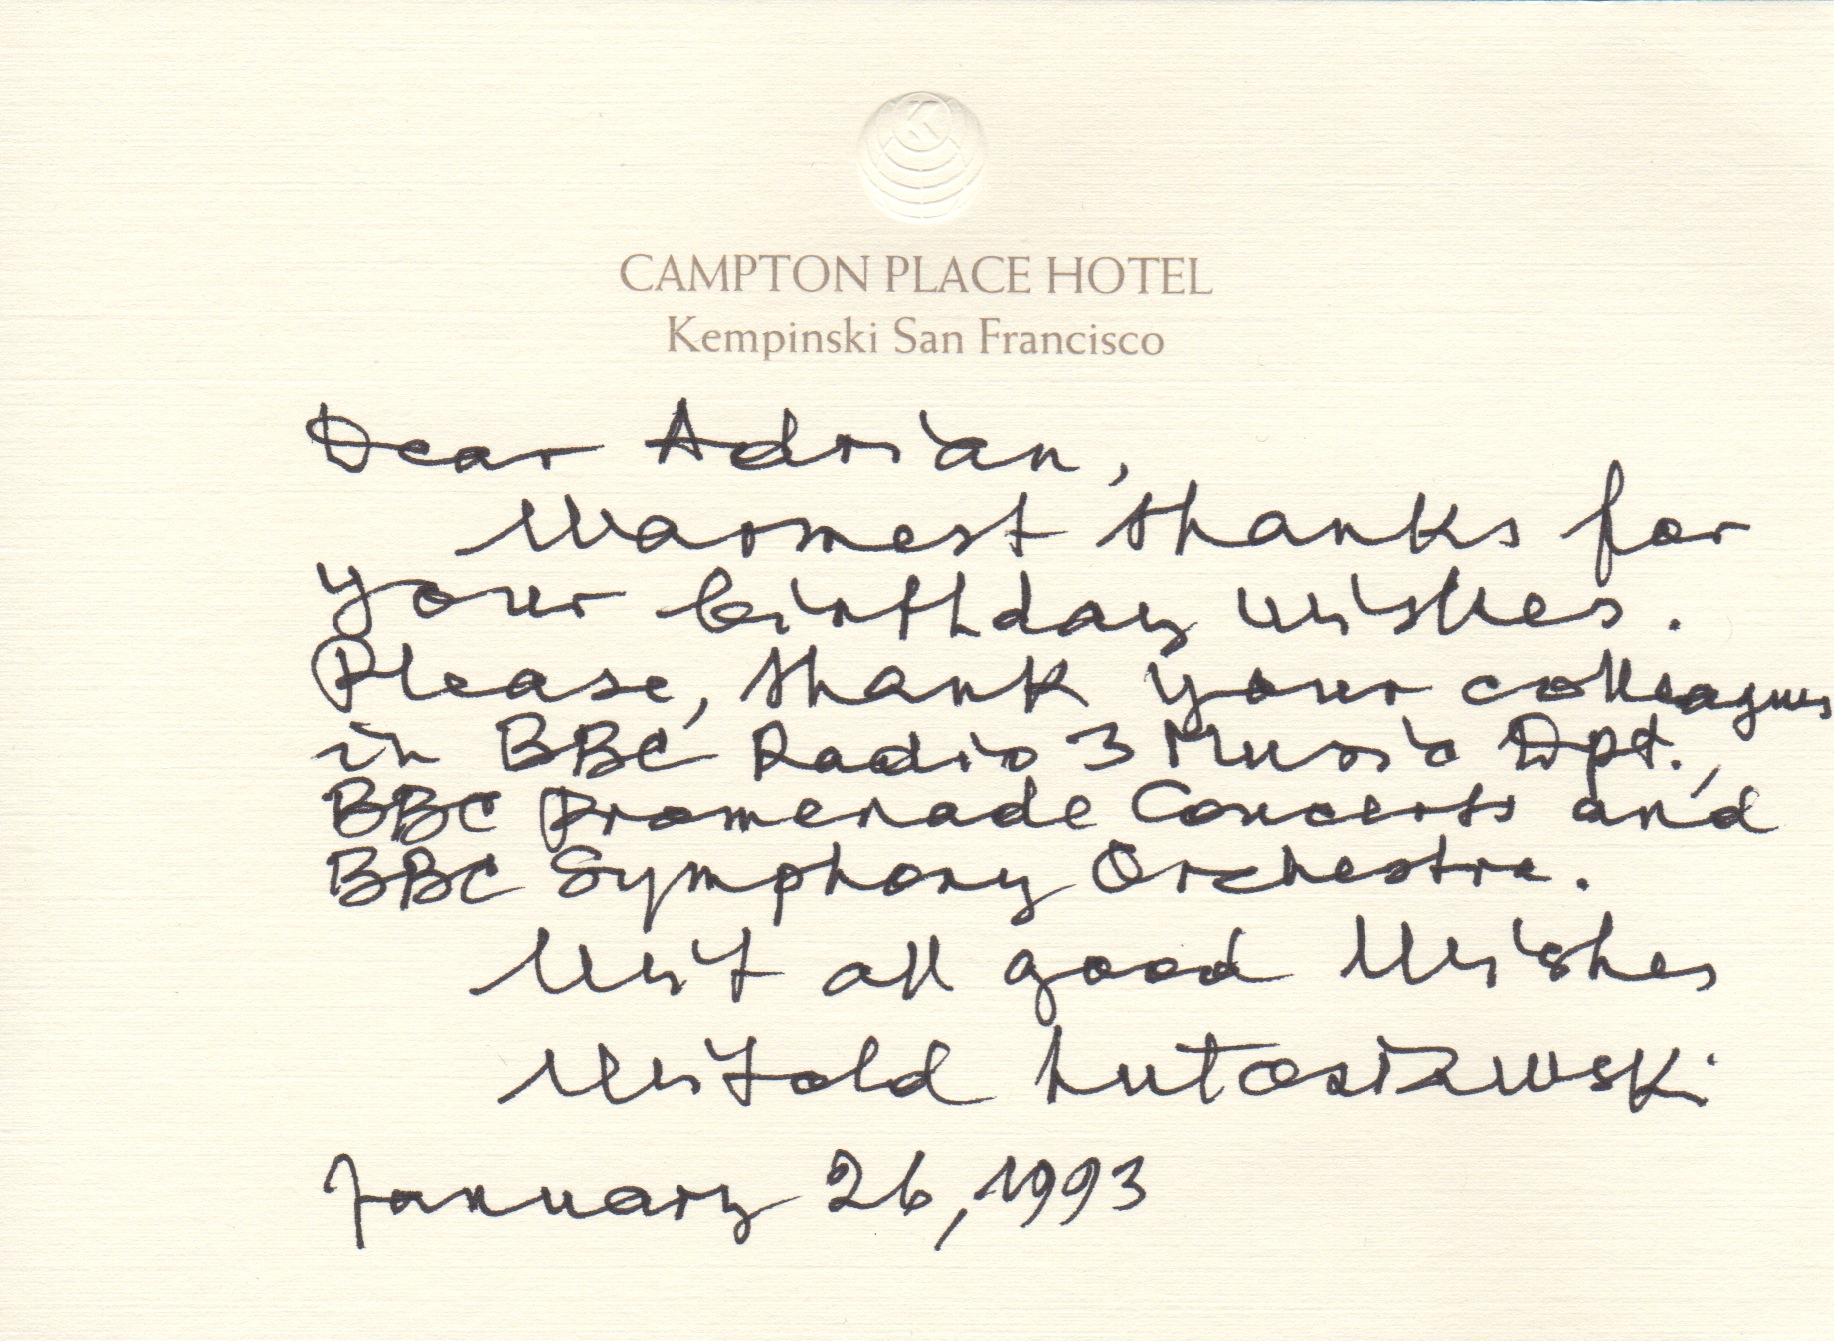 K
CAMPTON PLACE HOTEL
Kempinski San Francisco
Dear Adrian,
Warmest thanks for
your birthday wishes.
Please, thank your colleagues
in BBC Radio 3 Music Dpt.,
BBC Promenade Concerts and
BBC Symphony Orchestra.
Wit all good wishes
Witold Lutosławski
January 26, 1993